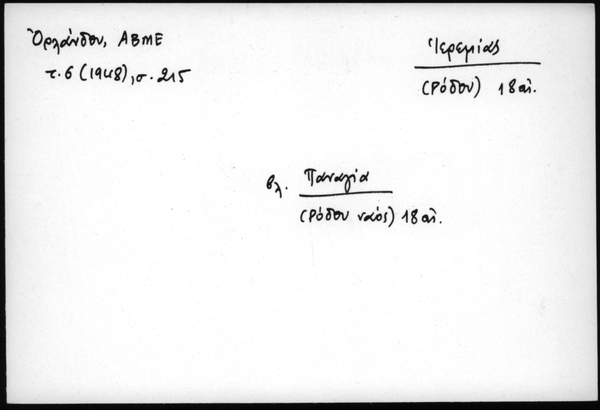 Ὀρλάνδου, ΑΒΜΕ
τ. 6 (1948), σ. 215
Ἱερεμίας
(Ρόδου) 18 αἰ.
βλ. Παναγία
(Ρόδου ναός) 18 αἰ.